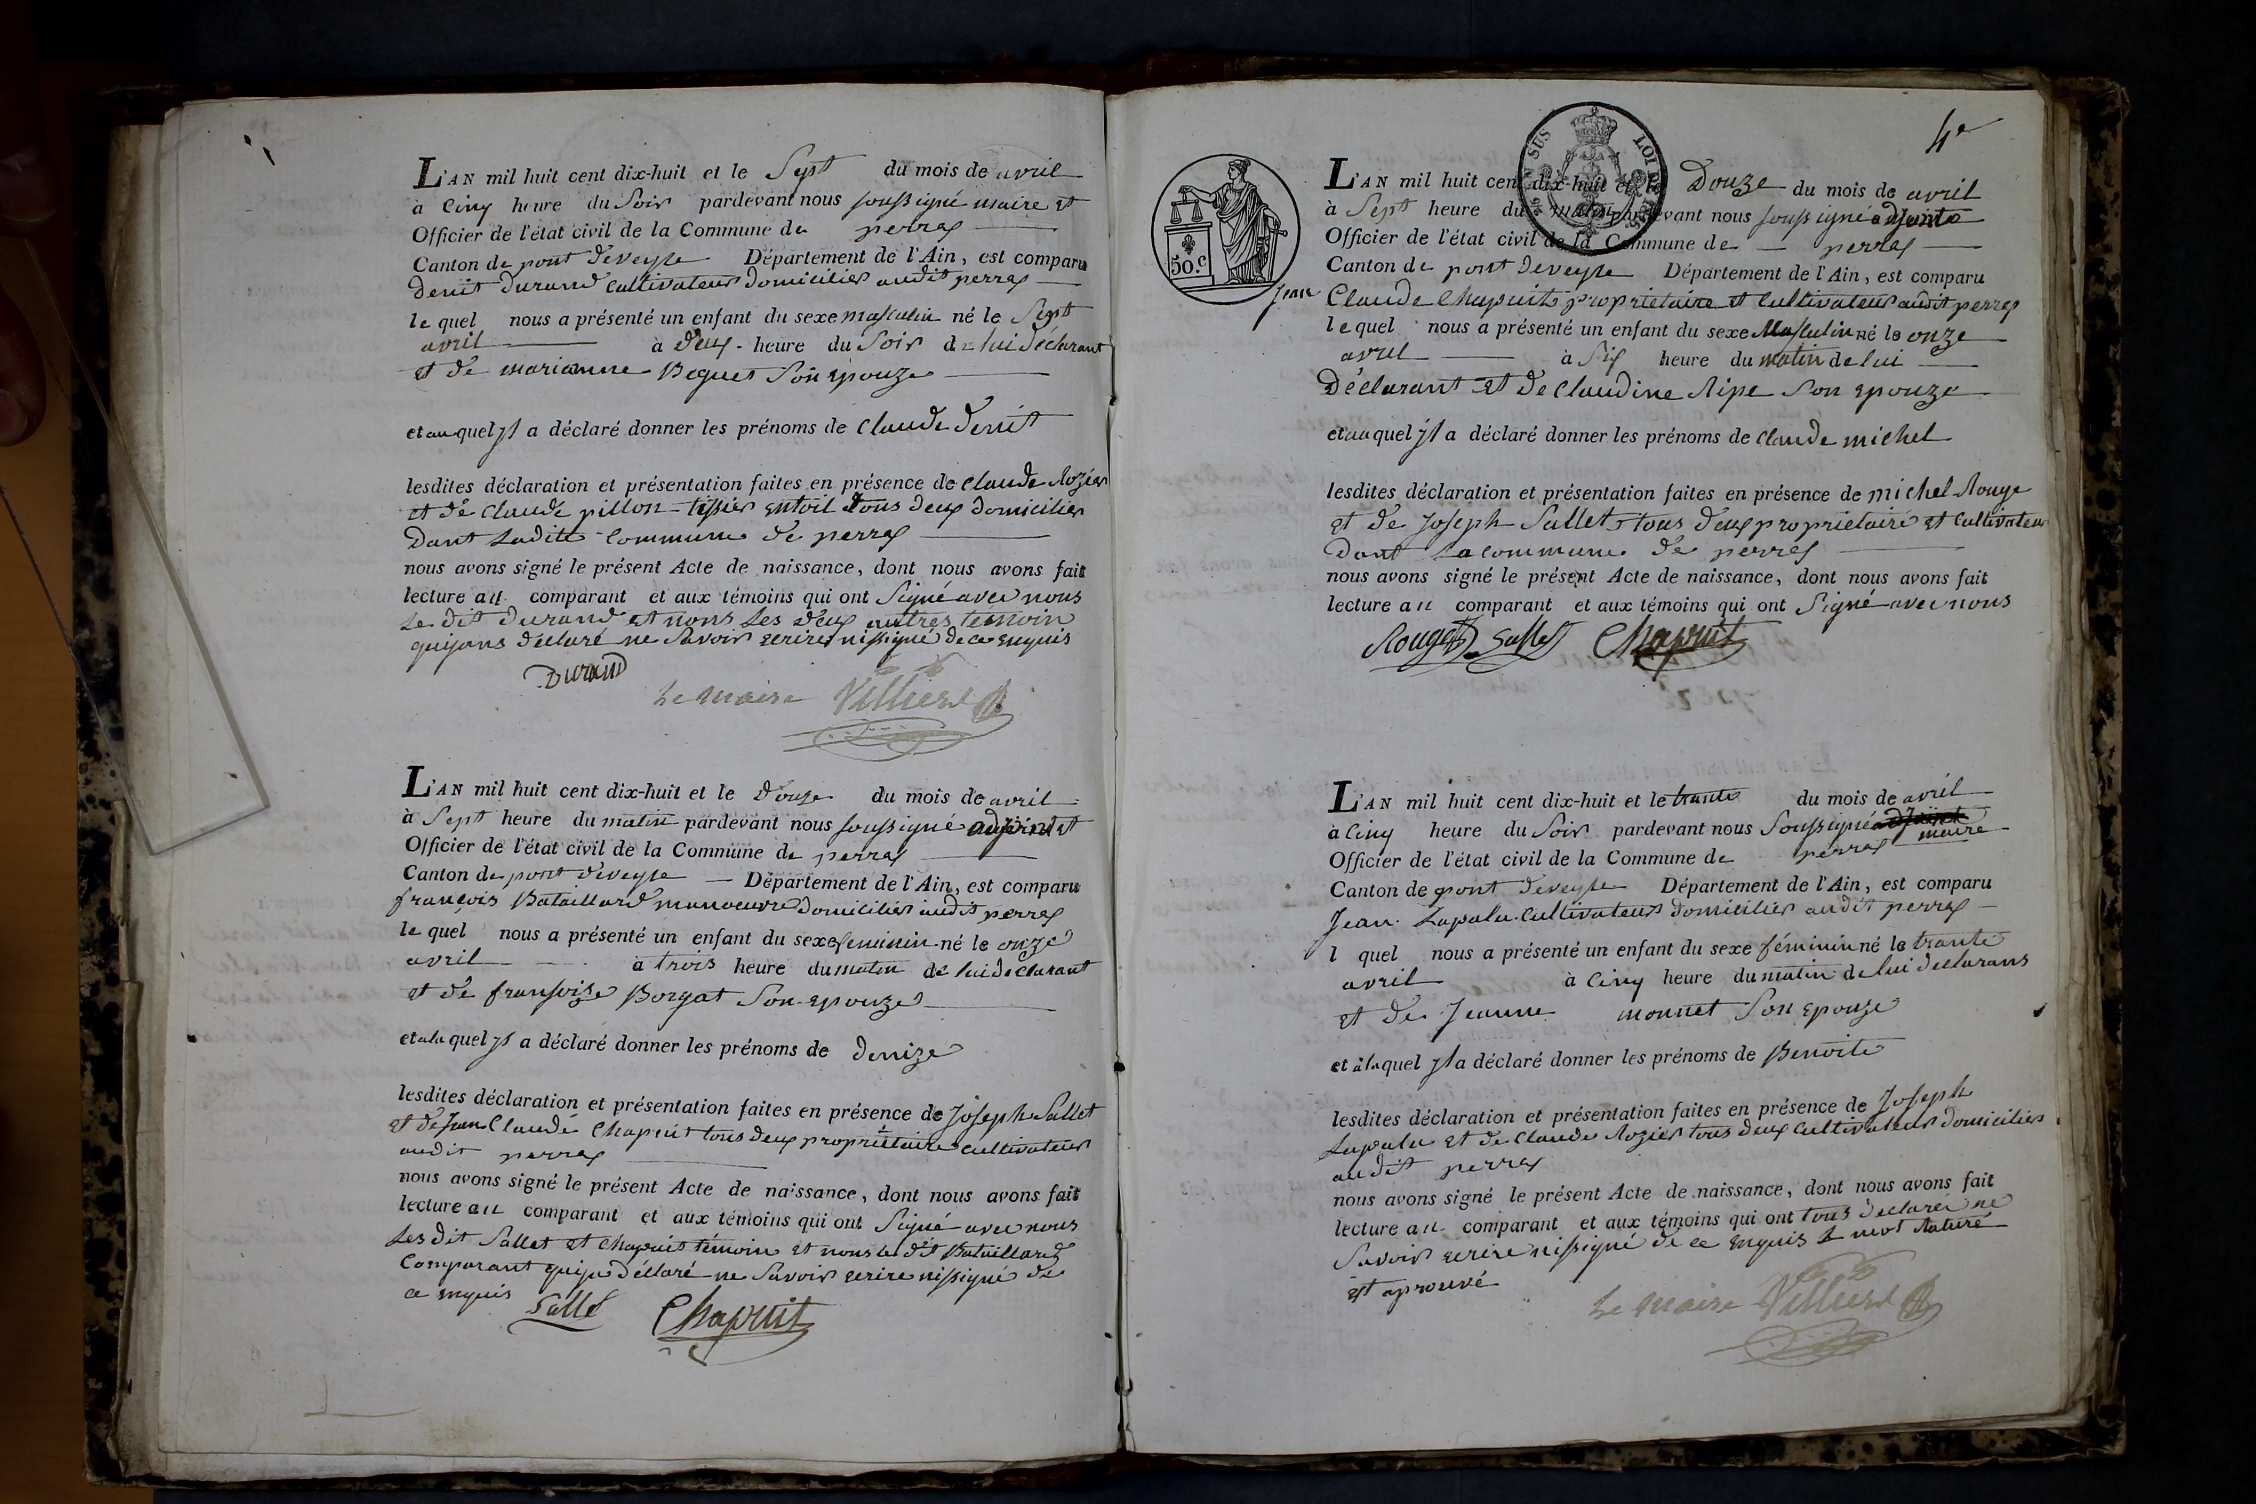 L'AN mil huit cent dix-huit et le Sept du mois de avril
à Cinq heure du Soir pardevant nous soussigné maire et
Officier de l'état civil de la Commune de perrex
Canton de pont deveyle Département de l'Ain, est comparu
denit durand Cultivateur domicilier audit perrex
le quel nous a présenté un enfant du sexe masculin né le Sept
avril à deux heure du Soir de lui déclarant
et de marianne Boguet Son epouze
et au quel jl a déclaré donner les prénoms de Claude denit
lesdites déclaration et présentation faites en présence de Claude Rozier
et de Claude pillon tissier entoil tous deux domicilier
Dant Ladite Commune de perrex
nous avons signé le présent Acte de naissance, dont nous avons fait
lecture au comparant et aux témoins qui ont Signé avec nous
Le dit durand et nons Les deux autres temoin
quijons déclaré ne Savoir ecrire nissigné de ce enquis
Durand
Le maire Villierd
L'AN mil huit cent dix-huit et le douze du mois de avril
à Sept heure du matin pardevant nous soussigné adjoint et
Officier de l'état civil de la Commune de perrex
Canton de pont deveyle Département de l'Ain, est comparu
françois Bataillard manoeuvre domicilier audit perrex
le quel nous a présenté un enfant du sexe feminin né le onze
avril à trois heure du matin de lui declarant
et de fransoize Borgat Son epouze
et ala quel jl a déclaré donner les prénoms de denize
lesdites déclaration et présentation faites en présence de Joseph Sallet
et de Jean Claude Chapuit tous deux proprietaire cultivateur
audit perrex
nous avons signé le présent Acte de naissance, dont nous avons fait
lecture au comparant et aux témoins qui ont Signé avec nous
Les dit Sallet et Chapuis témoin et nons le dit Bataillard
Comparant quija déclaré ne Savoir ecrire nissigné de
ce enquis
Sallet Chapuit
4e
50.c
LOI DE
L'AN mil huit cent dix-huit et le Douze du mois de avril
à Sept heure du matin pardevant nous soussigné adjoint
Officier de l'état civil de la Commune de perrex
Canton de pont deveyle Département de l'Ain, est comparu
Jean Claude Chapuit proprietaire et Cultivateur audit perrex
le quel nous a présenté un enfant du sexe Masculin né le onze
avril à Six heure du matin de lui
Déclarant et de Claudine Ripe Son epouze
et au quel jl a déclaré donner les prénoms de Claude michel
lesdites déclaration et présentation faites en présence de michel Rouge
et de Joseph Sallet tous deux proprietaire et Cultivateur
Dant La commune de perrex
nous avons signé le présent Acte de naissance, dont nous avons fait
lecture au comparant et aux témoins qui ont Signé avec nous
Rouget Sallet Chapuit
L'AN mil huit cent dix-huit et le trante du mois de avril
à Cinq heure du Soir pardevant nous Soussigné adjoint maire
Officier de l'état civil de la Commune de perrex
Canton de pont deveyle Département de l'Ain, est comparu
Jean Lapalu Cultivateur domicilier audit perrex
l quel nous a présenté un enfant du sexe féminin né le trante
avril à Cinq heure du matin de lui declarans
et de Jeanne monnet Son epouze
et àla quel jl a déclaré donner les prénoms de Benoite
lesdites déclaration et présentation faites en présence de Joseph
Lapalu et de Claude Rozier tous deux Cultivateur domicilier
audit perrex
nous avons signé le présent Acte de naissance, dont nous avons fait
lecture au comparant et aux témoins qui ont tous declarer ne
Savoir ecrire nissigné de ce enquis le mot Raturé
est aprouvé
Le maire Villierd